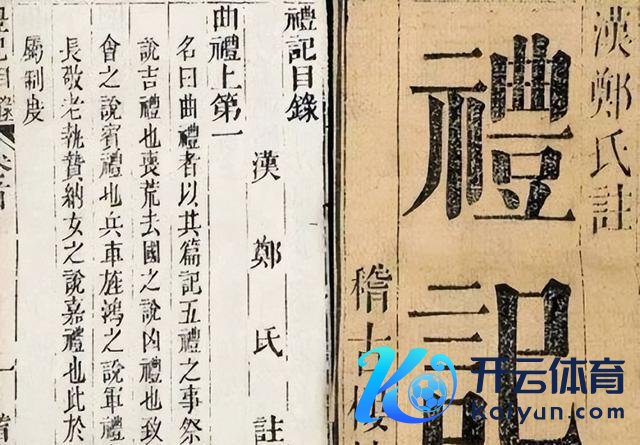 漢鄭氏註
禮記
稽
禮記目錄
漢鄭氏註
曲禮上第一
名曰曲禮者以其篇記五禮之事祭
說吉禮也喪荒去國之說凶禮也致
會之說賓禮也兵車旌鴻之說軍禮
也
長敬老執贄納女之說嘉禮也此於
屬制度
开云体育
Kaiyun.com